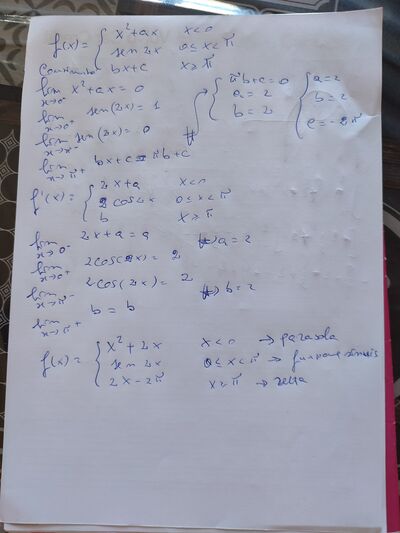 f(x) = { x² + ax x < 0
sen 2x 0 ≤ x < π
Continuità bx + c x ≥ π
lim x→0⁻ x² + ax = 0
lim x→0⁺ sen(2x) = 1
lim x→π⁻ sen(2x) = 0
lim x→π⁺ bx + c = πb + c
{ πb + c = 0
a = 2
b = 2
{ a = 2
b = 2
c = -2π
f'(x) = { 2x + a x < 0
2 cos 2x 0 ≤ x < π
b x ≥ π
lim x→0⁻ 2x + a = a
lim x→0⁺ 2cos(2x) = 2 a = 2
lim x→π⁻ 2cos(2x) = 2
lim x→π⁺ b = b b = 2
f(x) = { x² + 2x x < 0 → parabola
sen 2x 0 ≤ x < π → funzione sinusis
2x - 2π x ≥ π → retta